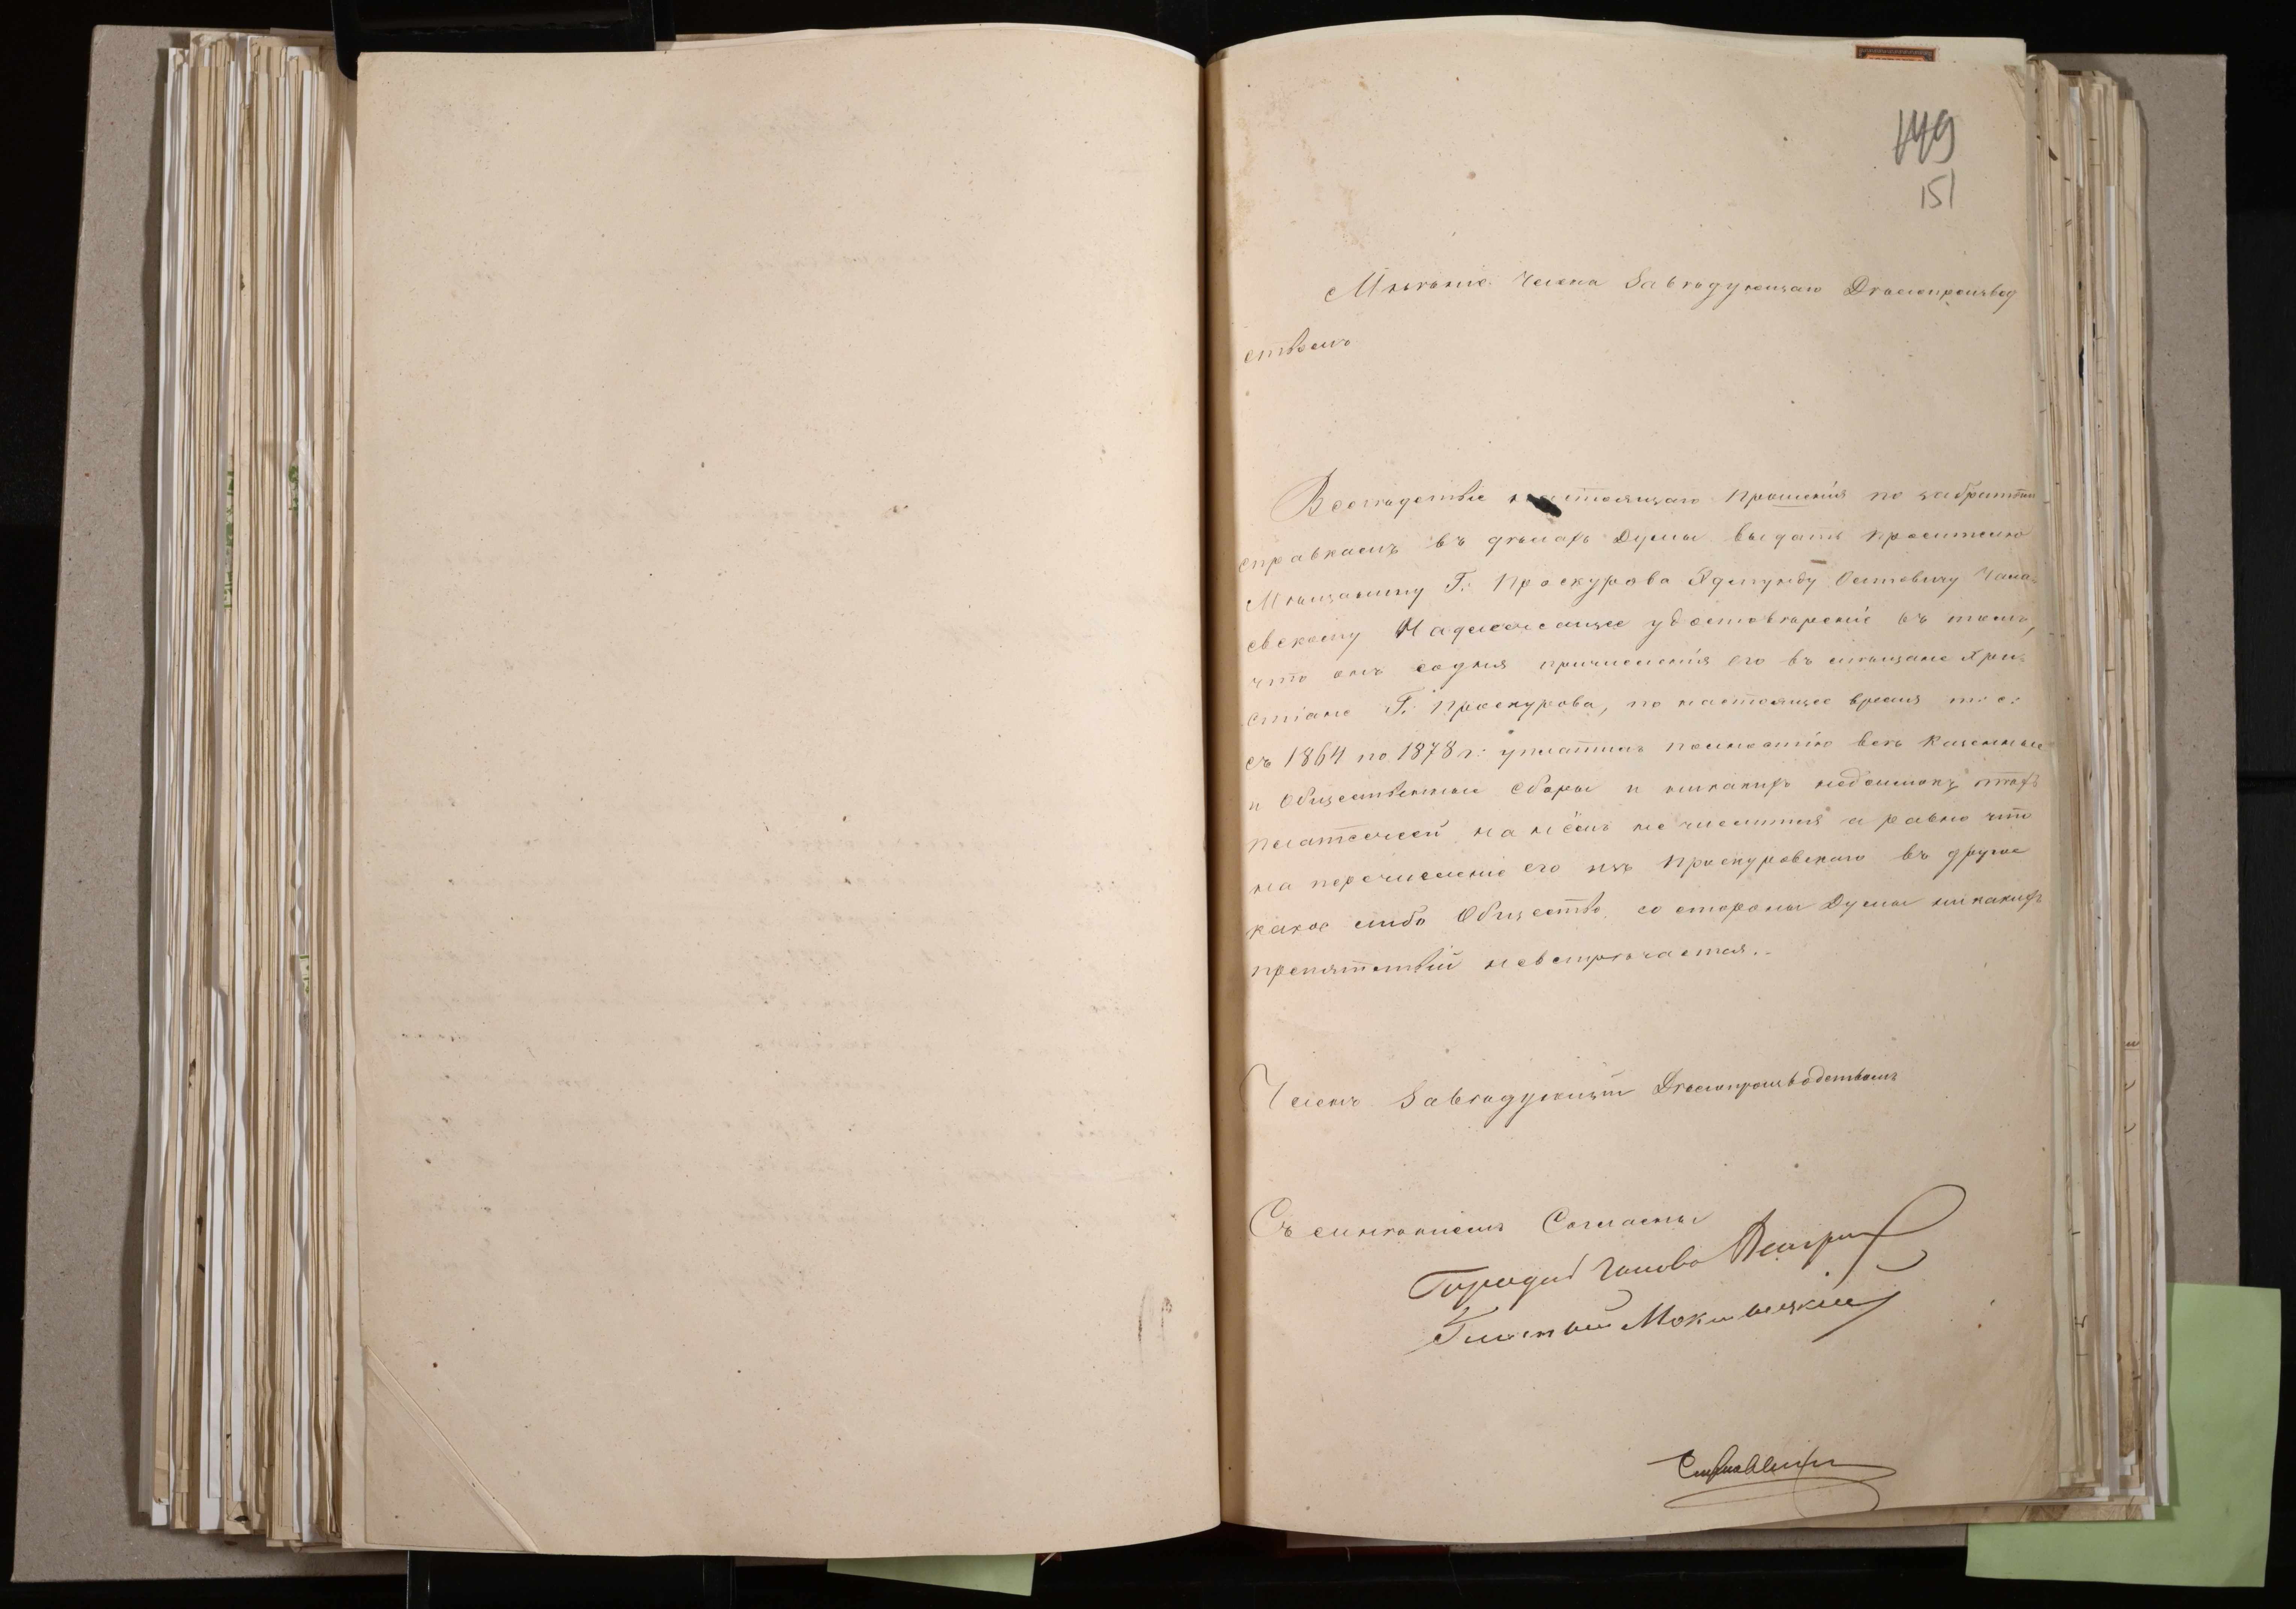 149
151
Мнѣніе Члена Завѣдующаго Дѣлопроизвод
ствомъ
Вслѣдствіе настоящаго прошенія по забраннымъ
справкамъ въ дѣлахъ Думы выдать просителю
Мѣщанину Г. Проскурова Эдмунду Осиповичу
евскому Надлежащее удостовѣреніе въ томъ,
что онъ содня причисленія его въ мѣщане Хри-
стіане Г. Проскурова, по настоящее время т. е.
съ 1864 по 1878 г. уплатилъ полностію всѣ казенные
и Общественные сборы и никакихъ недоимокъ этихъ
платежей на нёмъ не числится а равно что
на перечисленіе его изъ Проскуровскаго въ другое
какое либо Общество со стороны Думы никакихъ
препятствій невстрѣчается.
Членъ Завѣдующій Дѣлопроизводствомъ
Съ мнѣніемъ Согласны
Город Голова
Гласный